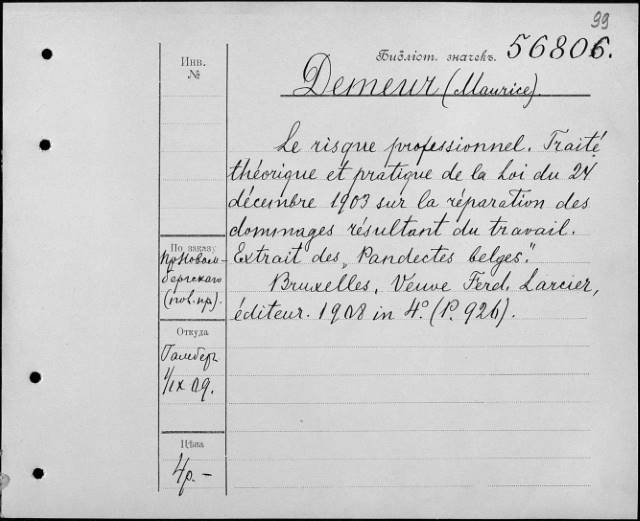 99
Библіот. значекъ. 56806.
Инв.
№
Demeur (Maurice).
Le risque professionnel. Traité
théorique et pratique de la Loi du 24
décembre 1903 sur la réparation des
dommages résultant du travail.
Extrait des „Pandectes belges".
Bruxelles, Veuve Ferd. Larcier,
éditeur. 1908 in 4º. (P. 926).
По заказу
пр. Новом-
бергскаго
(пол. пр).
Откуда
Гамбер
1/IX 09.
Цѣна
4р.-